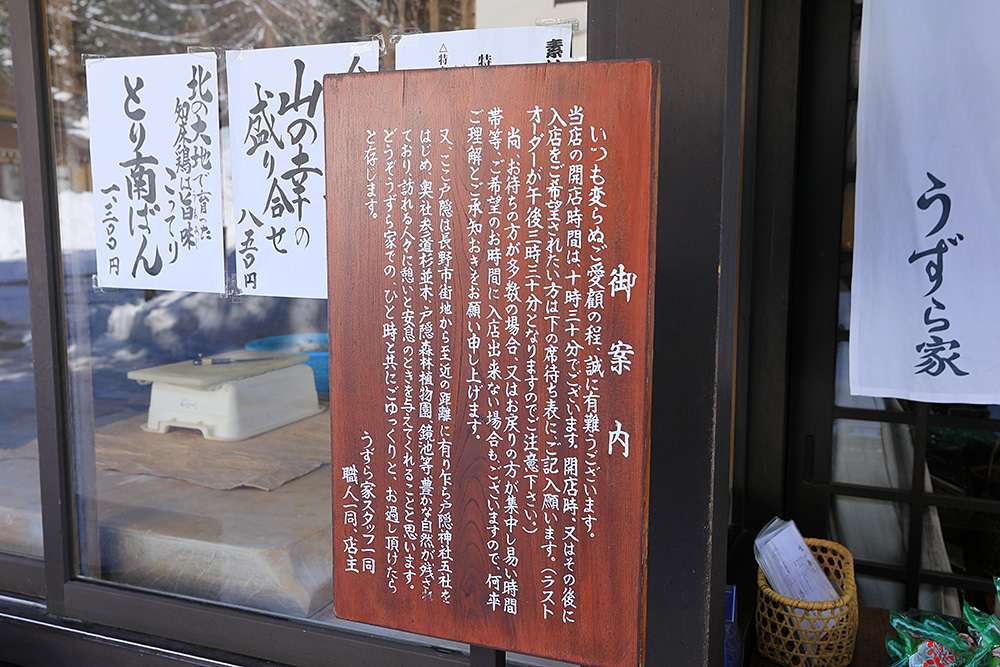 御案内
いつも変らぬご愛顧の程、誠に有難うございます。
当店の開店時間は、十時三十分でございます。開店時、又はその後に
入店をご希望されたい方は下の席待ち表にご記入願います。(ラスト
オーダーが午後三時三十分となりますのでご注意下さい)
尚、お待ちの方が多数の場合、又はお戻りの方が集中し易い時間
帯等、ご希望のお時間に入店出来ない場合もございますので、何卒
ご理解とご承知おきをお願い申し上げます。
又、ここ戸隠は長野市街地から至近の距離に有り乍ら戸隠神社五社を
はじめ、奥社参道杉並木、戸隠森林植物園、鏡池等豊かな自然が残され
ており、訪れる人々に憩いと安息のときを与えてくれることと思います。
どうぞ、うずら家での、ひと時と共にごゆっくりと、お過し頂けたら
と存じます。
うずら家スタッフ一同
職人一同、店主
うずら家
素
特
△特
山の幸の
盛り合せ
八五〇円
北の大地で育った
知床鶏は旨味
こってり
とり南ばん
一、三〇〇円